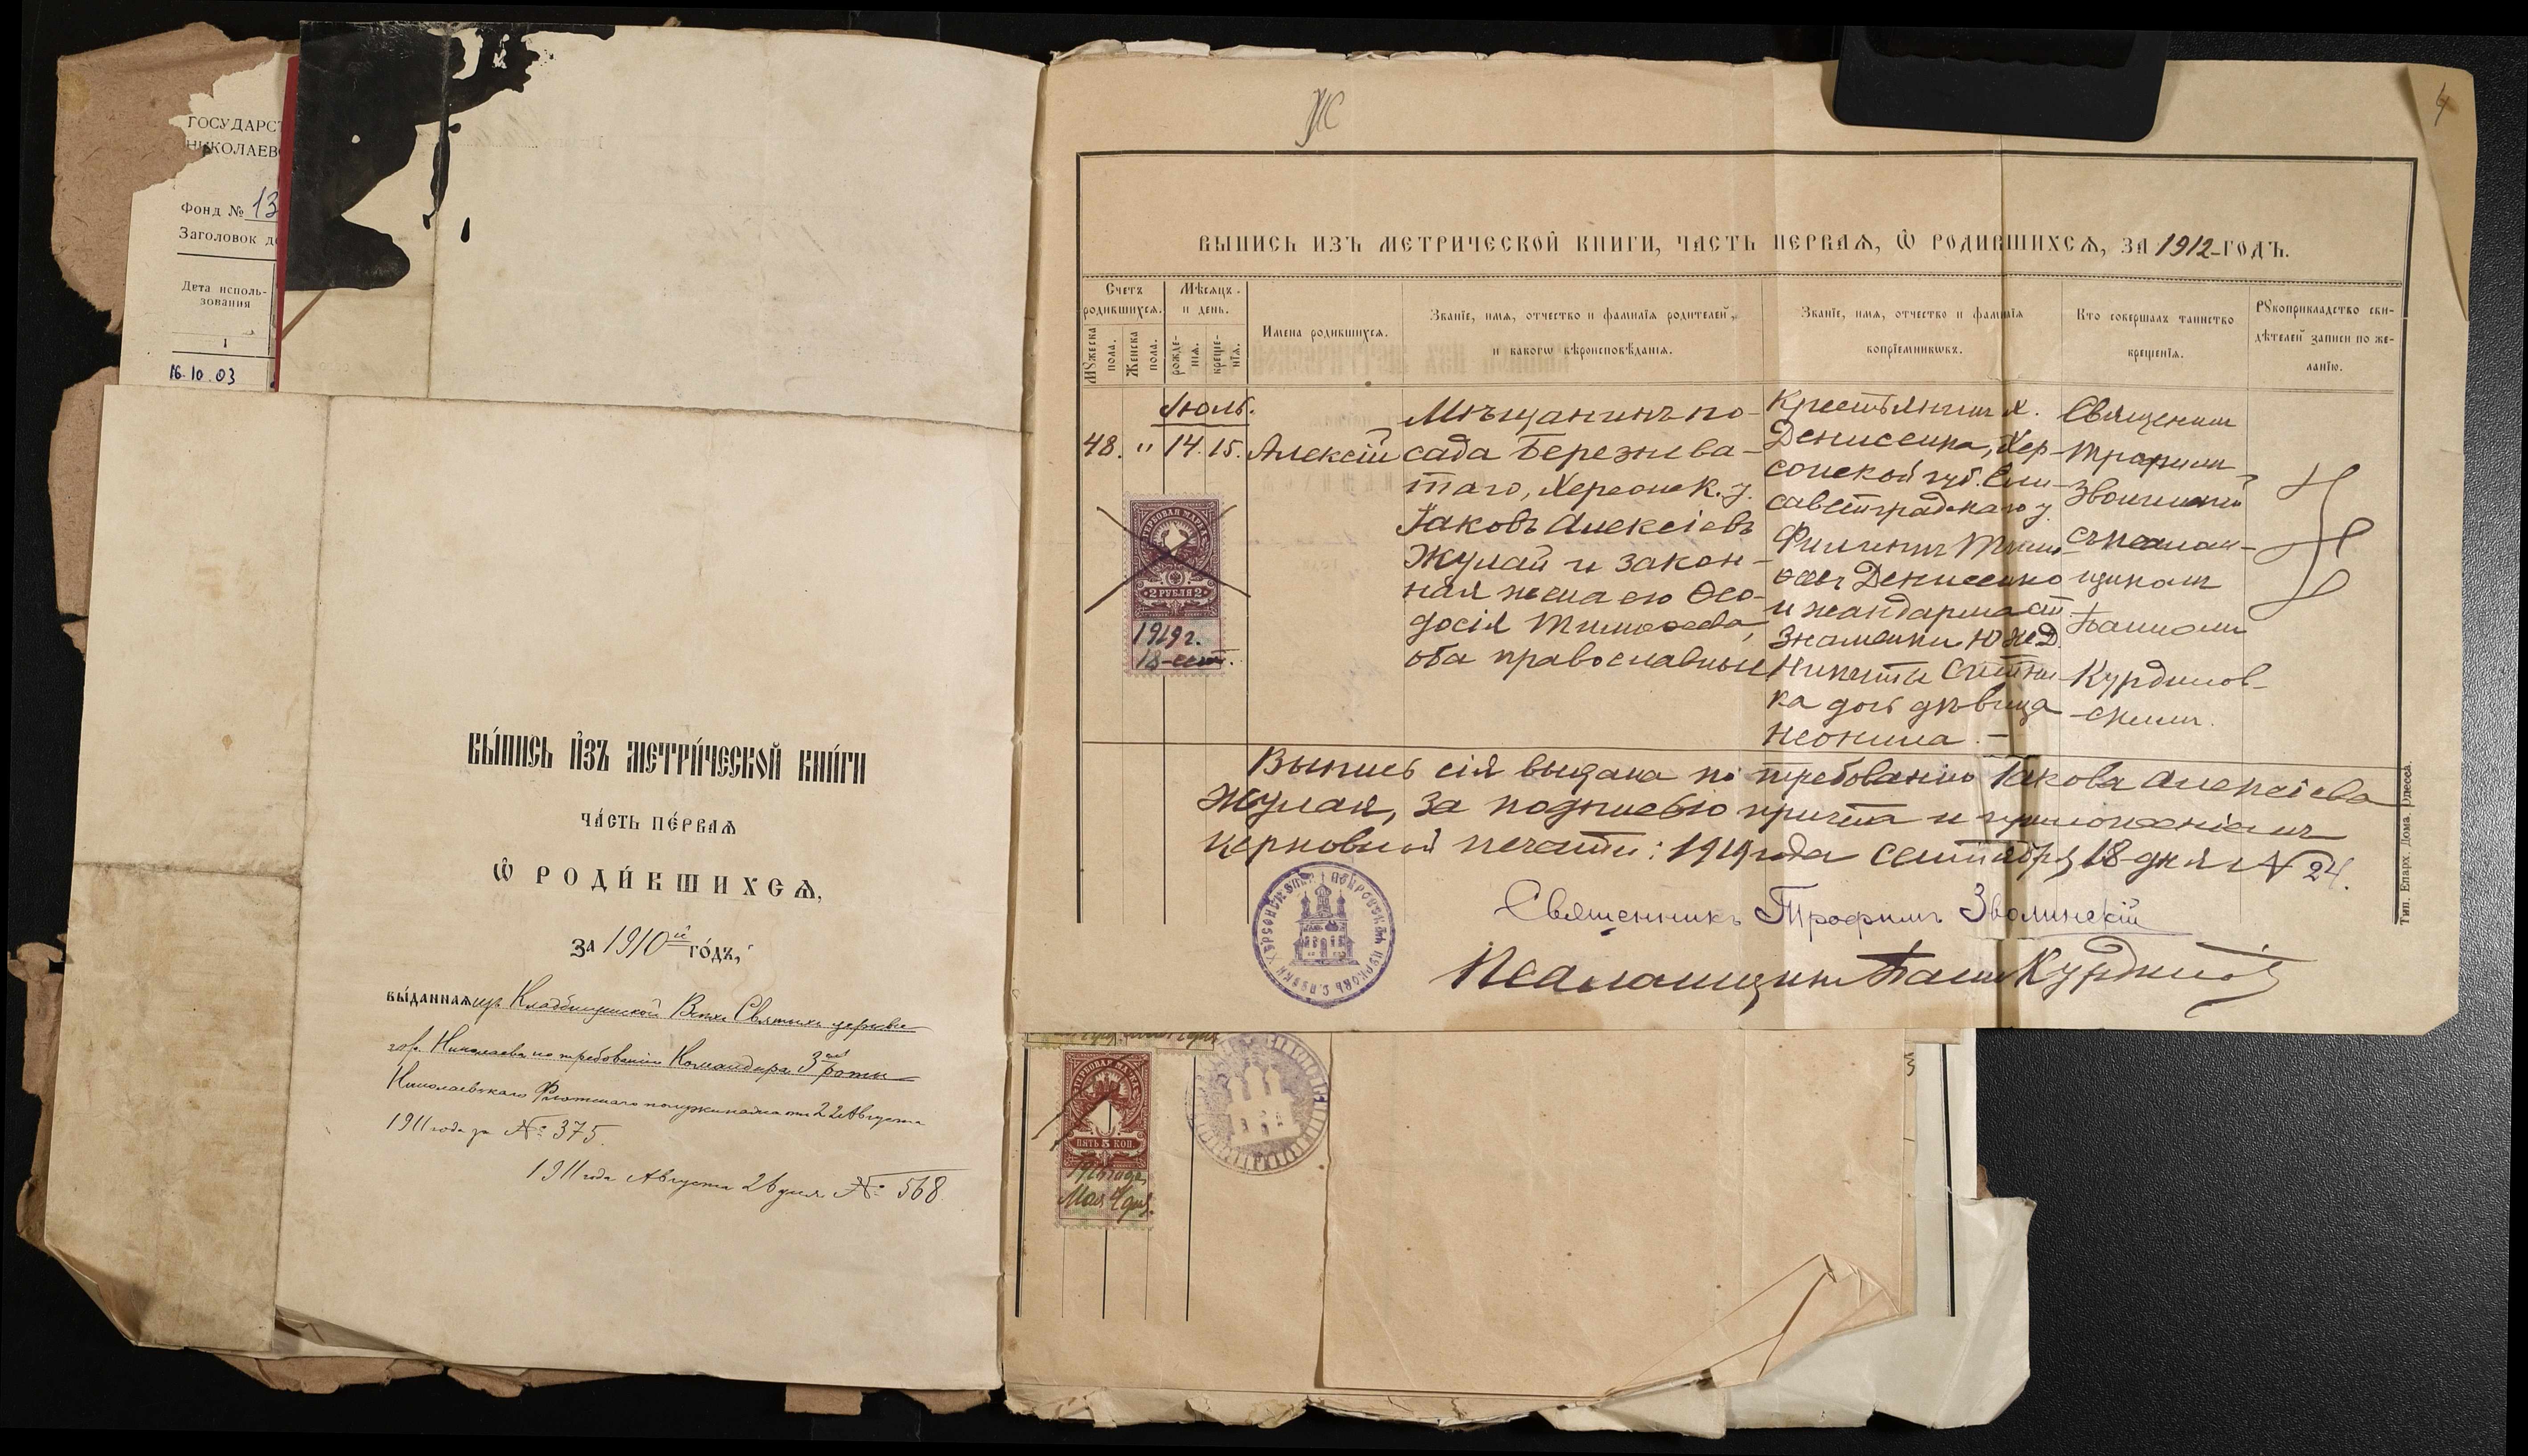 ГОСУДАРСТ
НИКОЛАЕВ
Фонд № 13
Заголовок д
Дата исполь-
зования
1
16.10.03
ВЫПИСЬ ИЗЪ МЕТРИЧЕСКОЙ КНИГИ
ЧАСТЬ ПЕРВАЯ
Ѿ РОДИВШИХСЯ,
ЗА 1910й ГОДЪ,
ВЫДАННАЯ изъ Кладбищенской Всѣхъ Святыхъ церкви
гор. Николаева по требованію Командира 3ей роты
Николаевскаго Флотскаго полуэкипажа отъ 22 Августа
1911 года за №: 375.
1911 года Августа 26 дня №: 568
Ж
4
ВЫПИСЬ ИЗЪ МЕТРИЧЕСКОЙ КНИГИ, ЧАСТЬ ПЕРВАЯ, Ѿ РОДИВШИХСЯ, ЗА 1912-ГОДЪ.
Счетъ родившихся.
Мужеска пола.
Женска пола.
Мѣсяцъ и день.
рожденія.
крещенія.
Имена родившихся.
Званіе, имя, отчество и фамилія родителей,
и какогѡ вѣроисповѣданія.
Званіе, имя, отчество и фамилія
воспріемникѡвъ.
Кто совершалъ таинство
крещенія.
Рукоприкладство сви-
дѣтелей записи по же-
ланію.
Іюль.
48. " 14. 15. Алексій
Мѣщанинъ по-
сада Березнева-
таго, Херсонск. у.
Іаковъ Алексіевъ
Жулай и закон-
ная жена его Ѳео-
досія Тимоѳеева,
оба православные
Крестьянинъ х.
Денисенка, Хер-
сонской губ. Ели-
саветградскаго у.
Филиппъ Тимо
ѳеевъ Денисенко
и жандарма ст.
Знаменки Ю.Ж.Д.
Никиты Ситни
ка дочь дѣвица
Неонила.-
Священникъ
Трофимъ
Зволинскій
съ псалом-
щикомъ
Курдинов-
скимъ.
ГЕРБОВАЯ МАРКА
2 РУБЛЯ 2
1919 г.
18-сент.
Выпись сія выдана по требованію Іакова Алексіева
Жулая, за подписью причта и приложеніемъ
церковной печати: 1919 года сентября 18 дня № 24.
Священникъ Трофимъ Зволинскій
Псаломщикъ
Тип. Епарх. Дома. Одесса.
ГЕРБОВАЯ МАРКА
ПЯТЬ 5 КОП.
1916 года
Мая 4 дня.